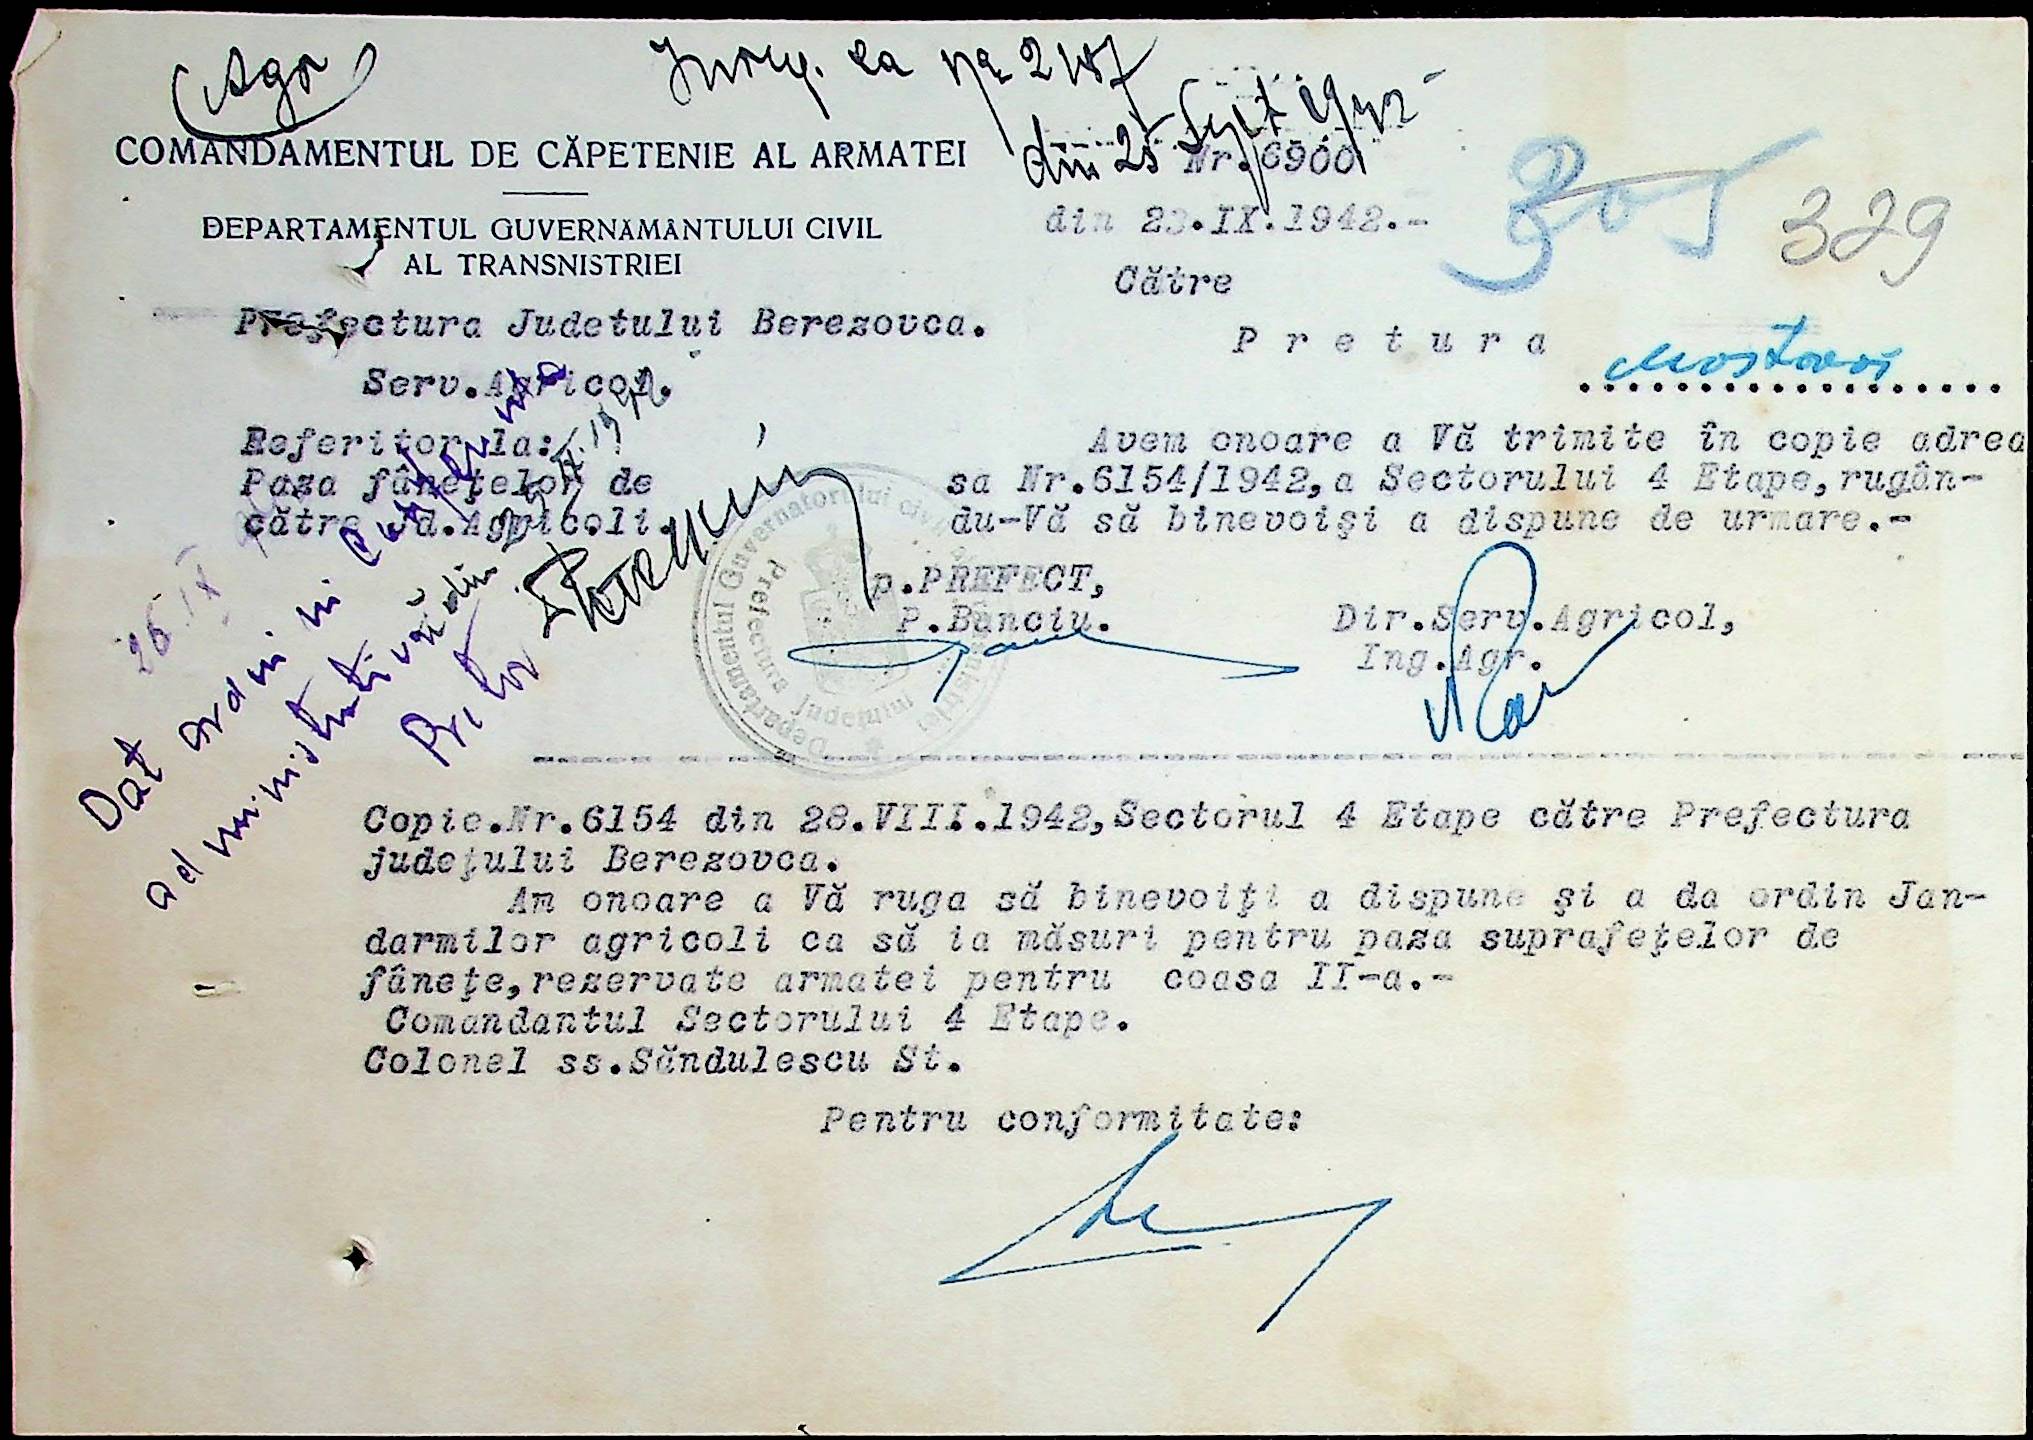 Agr
Inreg. la No 2187
din 25 Sept 1942
COMANDAMENTUL DE CĂPETENIE AL ARMATEI
Nr.6900
DEPARTAMENTUL GUVERNĂMÂNTULUI CIVIL
AL TRANSNISTRIEI
din 23.IX.1942.-
305
329
Către
Prefectura Judetului Berezovca.
Serv.Agricol.
P r e t u r a Mostovoi
Referitor la:
Paza fâneţelor de
către Jd.Agricoli.
Avem onoare a Vă trimite în copie adrea
sa Nr.6154/1942,a Sectorului 4 Etape,rugân-
du-Vă să binevoişi a dispune de urmare.-
p.PREFECT,
P.Banciu.
Dir.Serv.Agricol,
Ing.Agr.
Departamentul Guvernatorului civil Transnistriei
Prefectura Judeţului
26 IX
Dat ordin in conferinta
administrativă din
Pretor
Copie.Nr.6154 din 28.VIII.1942,Sectorul 4 Etape către Prefectura
judeţului Berezovca.
Am onoare a Vă ruga să binevoiţi a dispune şi a da ordin Jan-
darmilor agricoli ca să ia măsuri pentru paza suprafeţelor de
fâneţe,rezervate armatei pentru coasa II-a.-
Comandantul Sectorului 4 Etape.
Colonel ss.Săndulescu St.
Pentru conformitate: